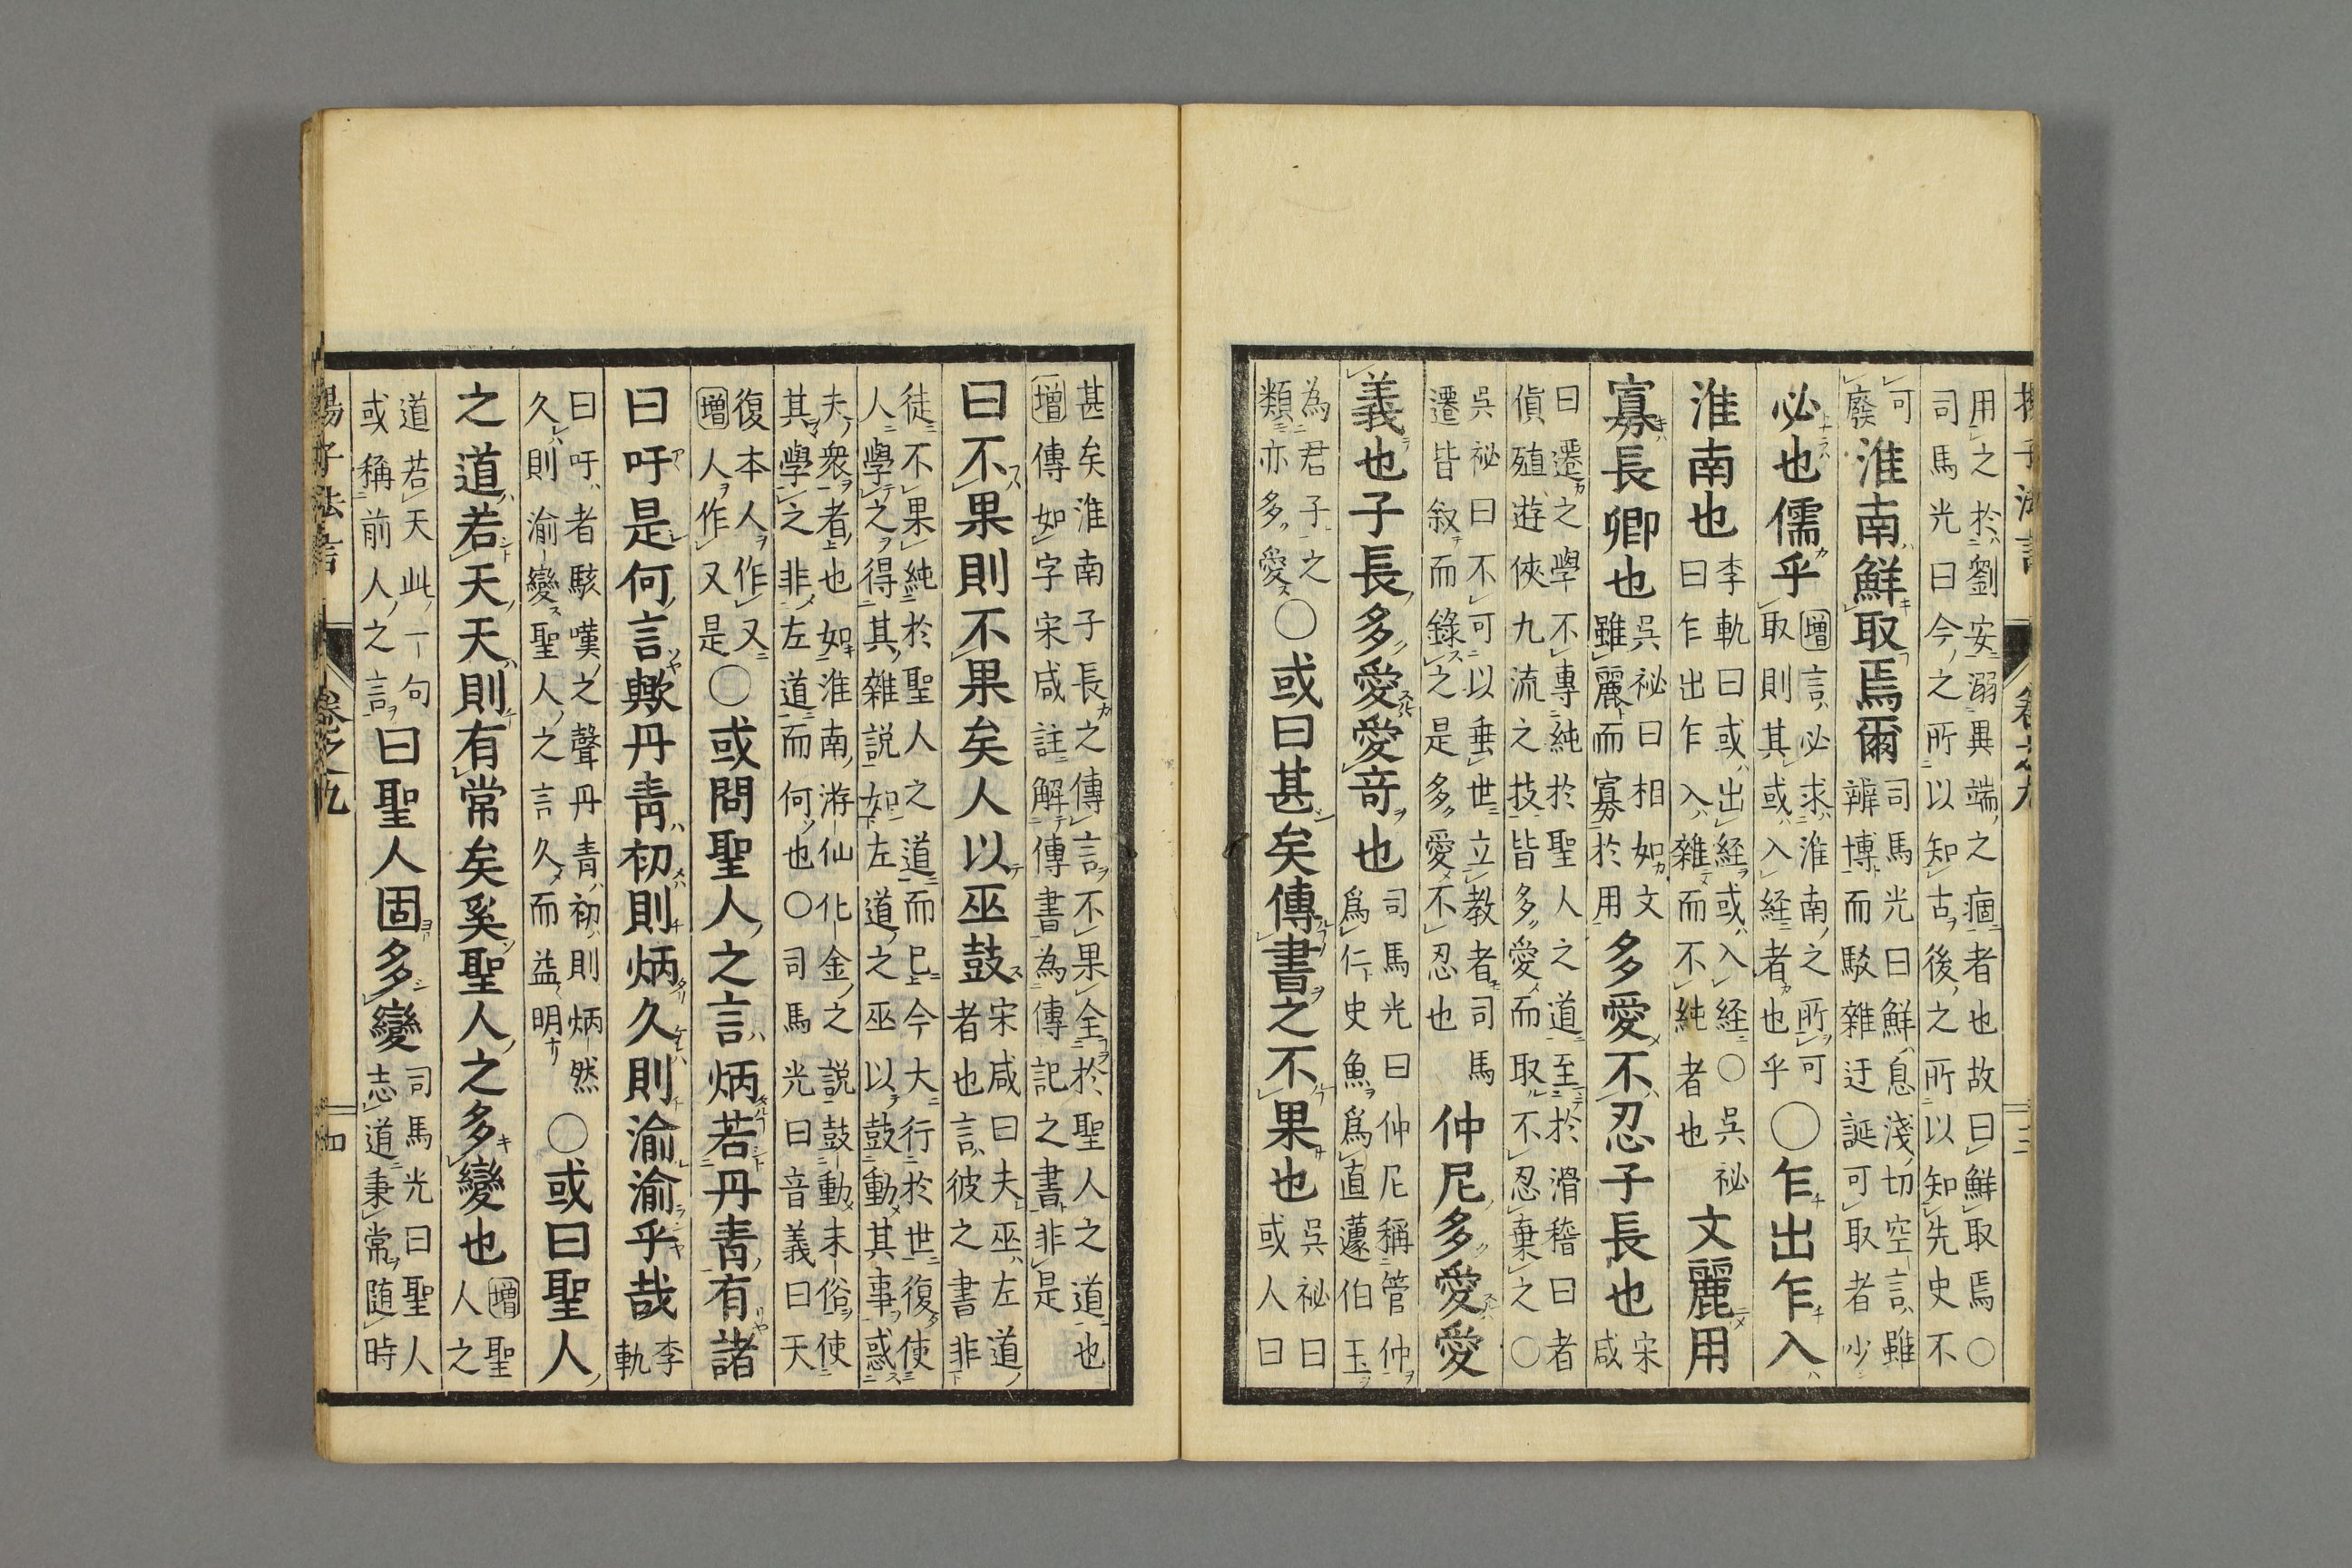 用之於劉安溺異端之痼者也故曰鮮取焉○
司馬光曰今之所以知古後之所以知先史不
可廢淮南鮮取焉爾司馬光曰鮮息淺切空言雖辨博而駁雜迂誕可取者少
必也儒乎增言必求淮南之所可取則其或入経者也乎○乍出乍入
淮南也李軌曰或出経或入経○吳祕曰乍出乍入雜而不純者也文麗用
寡長卿也吳祕曰相如文雖麗而寡於用多愛不忍子長也宋咸
曰遷之學不專純於聖人之道至於滑稽曰者
貨殖遊俠九流之技皆多愛而取不忍棄之○
吳祕曰不可以垂世立教者司馬遷皆叙而錄之是多愛不忍也仲尼多愛愛
義也子長多愛愛奇也司馬光曰仲尼稱管仲爲仁史魚爲直蘧伯玉
為君子之類亦多愛○或曰甚矣傳書之不果也吳祕曰或人曰
甚矣淮南子長之傳言不果全於聖人之道也
增傳如字宋咸註解傳書為傳記之書非是
曰不果則不果矣人以巫鼓宋咸曰夫巫左道者也言彼之書非
徒不果純於聖人之道而已今大行於世復使
人學之得其雜説如左道之巫以鼓動其事惑
夫衆者也如淮南游仙化金之説鼓動末俗使
其學之非左道而何也○司馬光曰音義曰天
復本人作又增人作又是○或問聖人之言炳若丹青有諸
曰吁是何言歟丹青初則炳久則渝渝乎哉李軌
曰吁者駭嘆之聲丹青初則炳然久則渝變聖人之言久而益明○或曰聖人
之道若天天則有常矣奚聖人之多變也增聖人之
道若天此一句或稱前人之言曰聖人固多變司馬光曰聖人志道秉常随時
楊子法言 卷之九 四